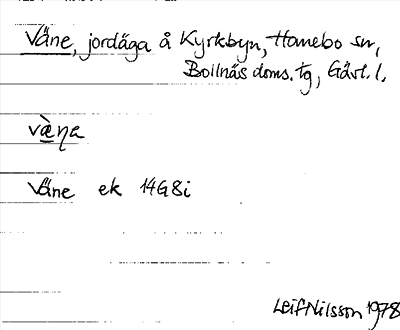 Väne, jordäga å Kyrkbyn, Hanebo sn,
Bollnäs doms. tg, Gävl. l.
vὲ̀ηa
Väne ek 14G8i
Leif Nilsson 1978